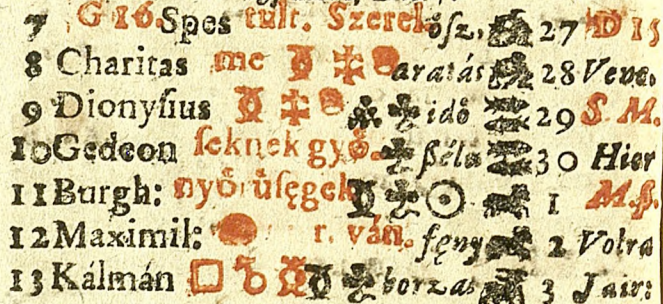 7 G 16. Spes tült. Szerek ősz, 27 D 15
8 Charitas me aratás 28 Vene.
9 Dionyſius idő 29 S M.
10 Gedeon ſeknek gyö- ßéla 30 Hier
11 Burgh: nyörüſęgek 1 M.ſ.
12 Maximil: r. ván. ſęny 2 Volra
13 Kálmán borzas 3 Jair: